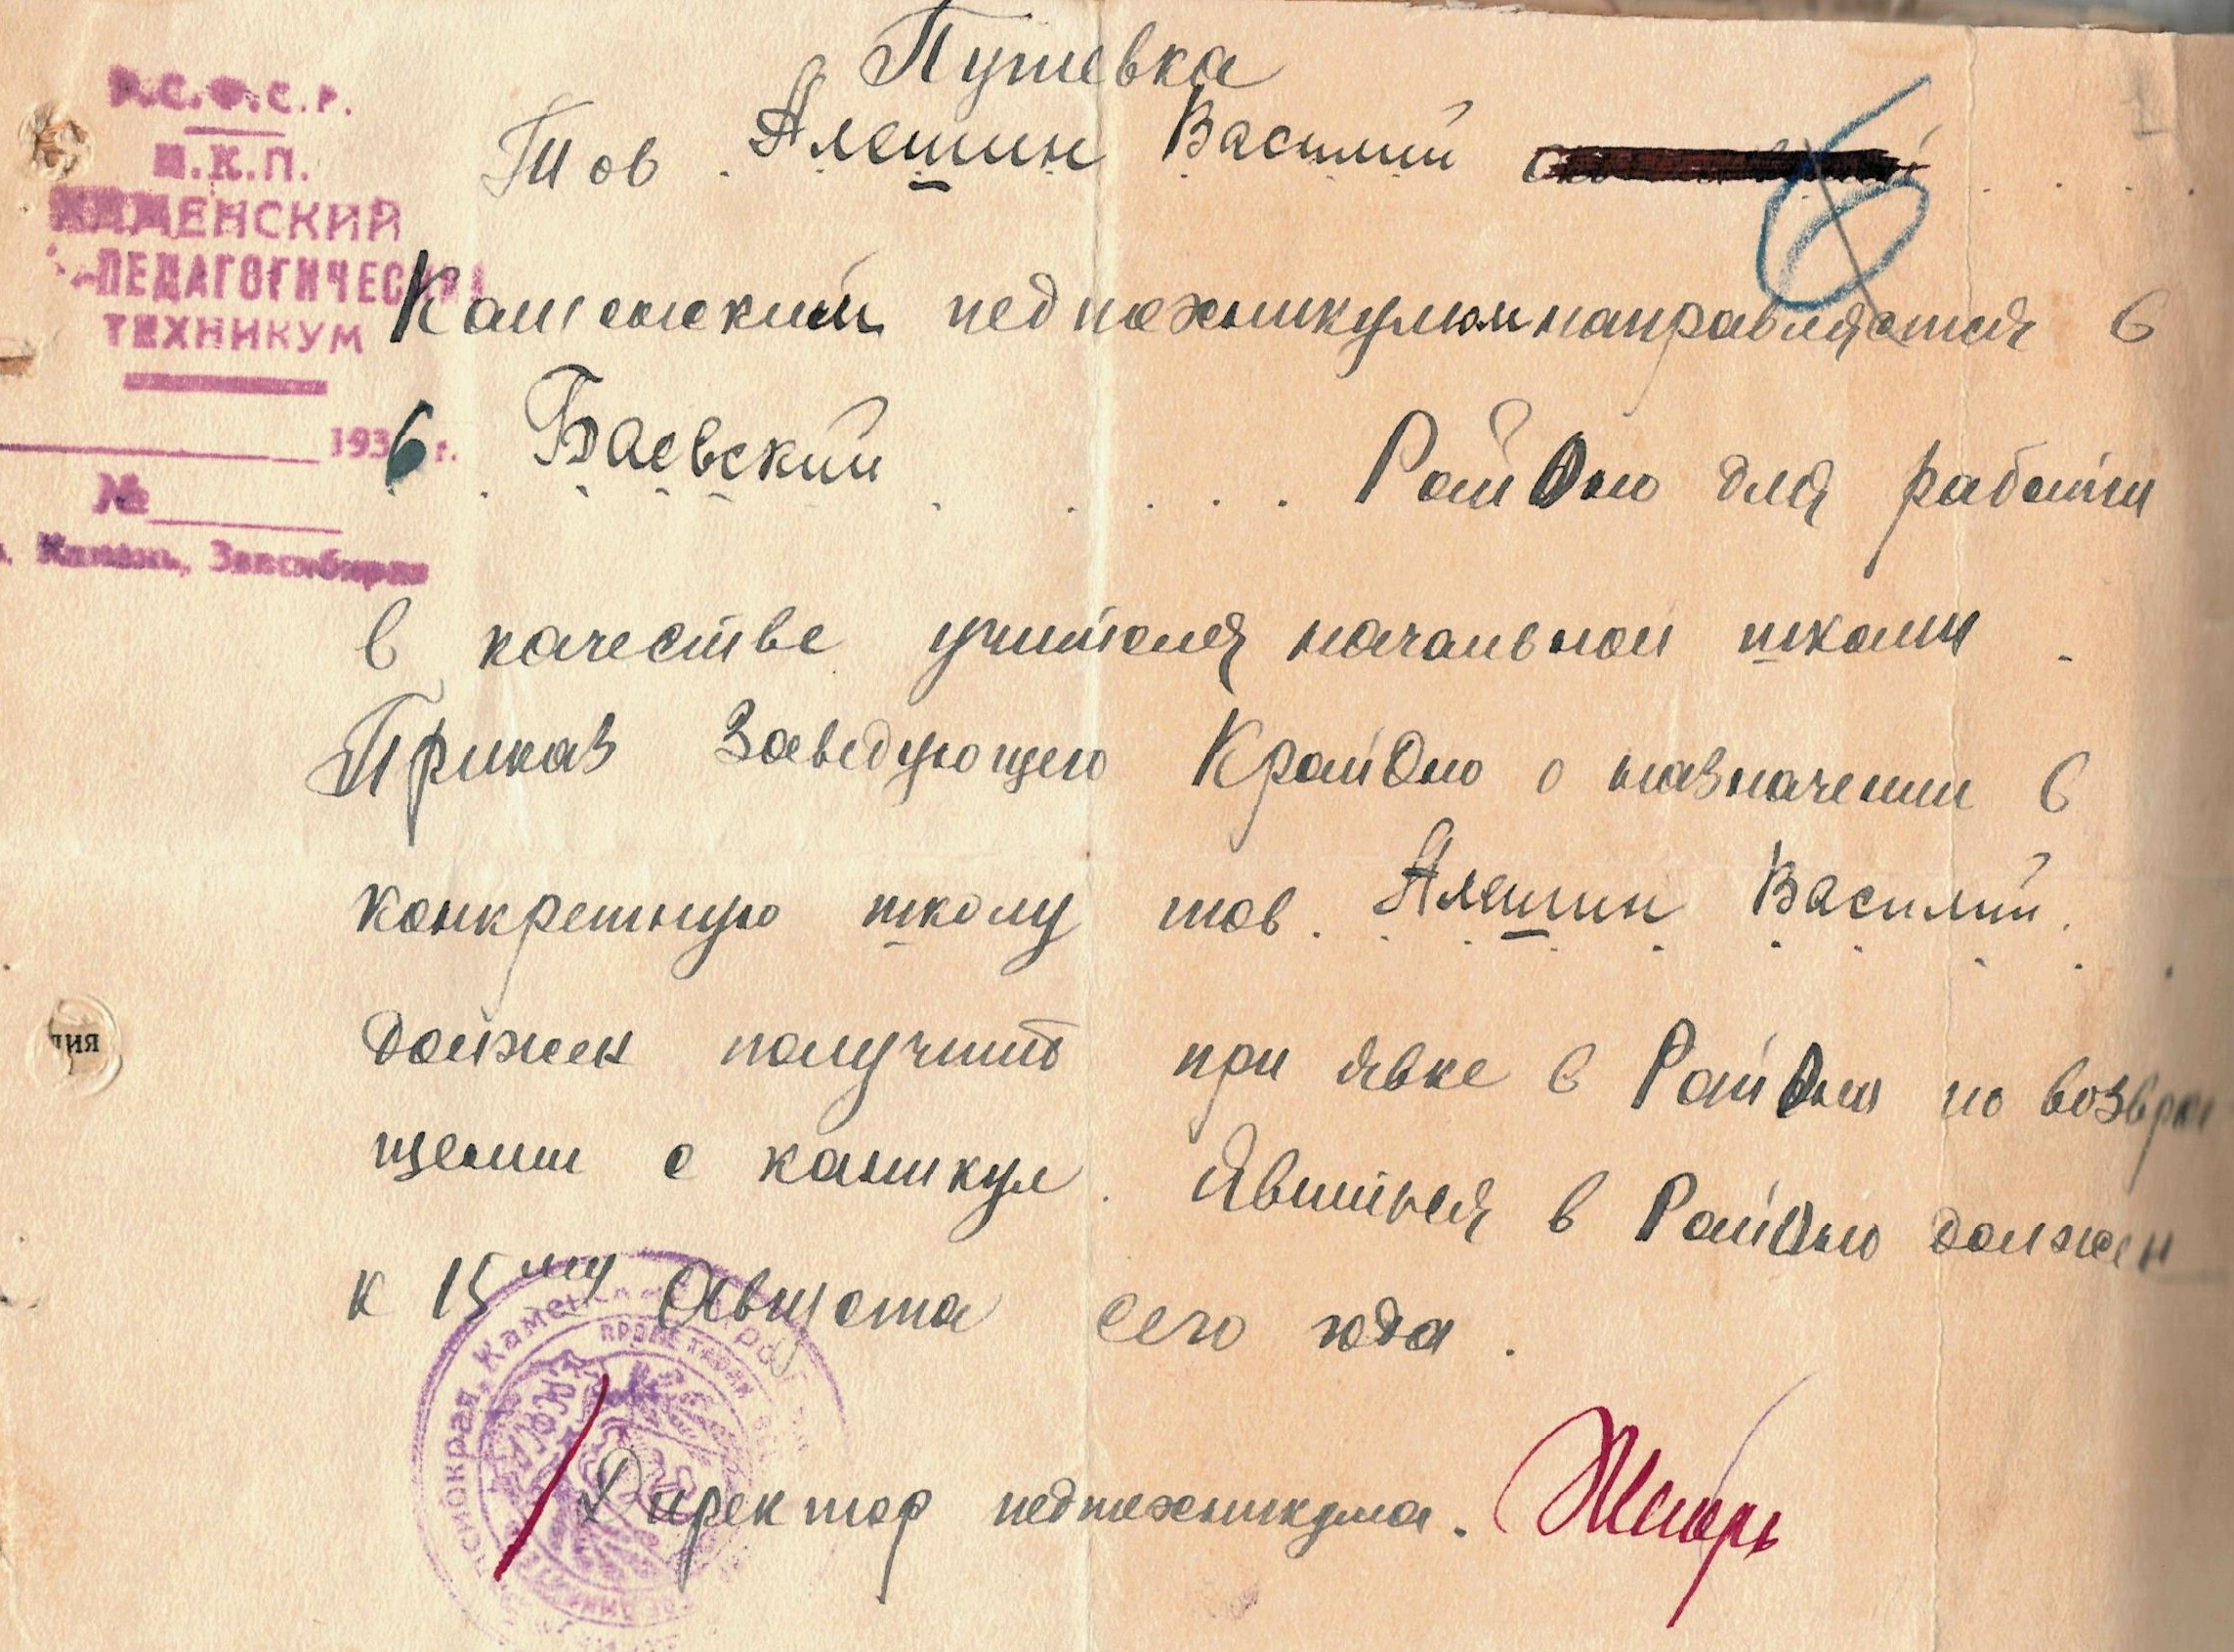 Путевка
Р.С.Ф.С.Р.
Н.К.П.
КАМЕНСКИЙ
ПЕДАГОГИЧЕСКИЙ
ТЕХНИКУМ
1936 г.
№
Камень, Запсибкрая
Тов. Алешин Василий
Каменский педтехникумом направляется в
Баевский РайОно для работы
в качестве учителя начальной школы.
Приказ Заведующего КрайОно о назначении в
конкретную школу тов. Алешин Василий.
должен получить при явке в РайОно по возвра
щении с каникул. Явиться в РайОно должен
к 15му Августа сего года.
Директор педтехникума.
ция